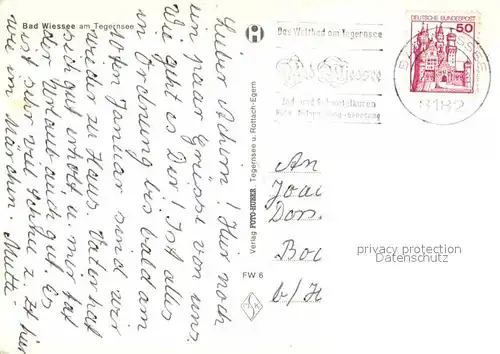 Bad Wiessee am Tegernsee
Lieber Achim! Nur noch
ein paar Grüsse von uns.
Wie geht es Dir! Ist alles
in Ordnung bis bald am
10ten Januar sind wir
wieder zu Haus. Vater hat
sich gut erholt, u. mir tat
der Urlaub auch gut. Es
ist sehr viel Schnee z. Zt hier
wie im Märchen. Mutti
Verlag FOTO-HUBER Tegernsee u. Rottach-Egern
FW 6
Das Weltbad am Tegernsee
Bad Wiessee
Jod- und Schwefelkuren
DEUTSCHE BUNDESPOST
50
8182
An
Joac
Dors
Boc
b/H
privacy protection
Datenschutz